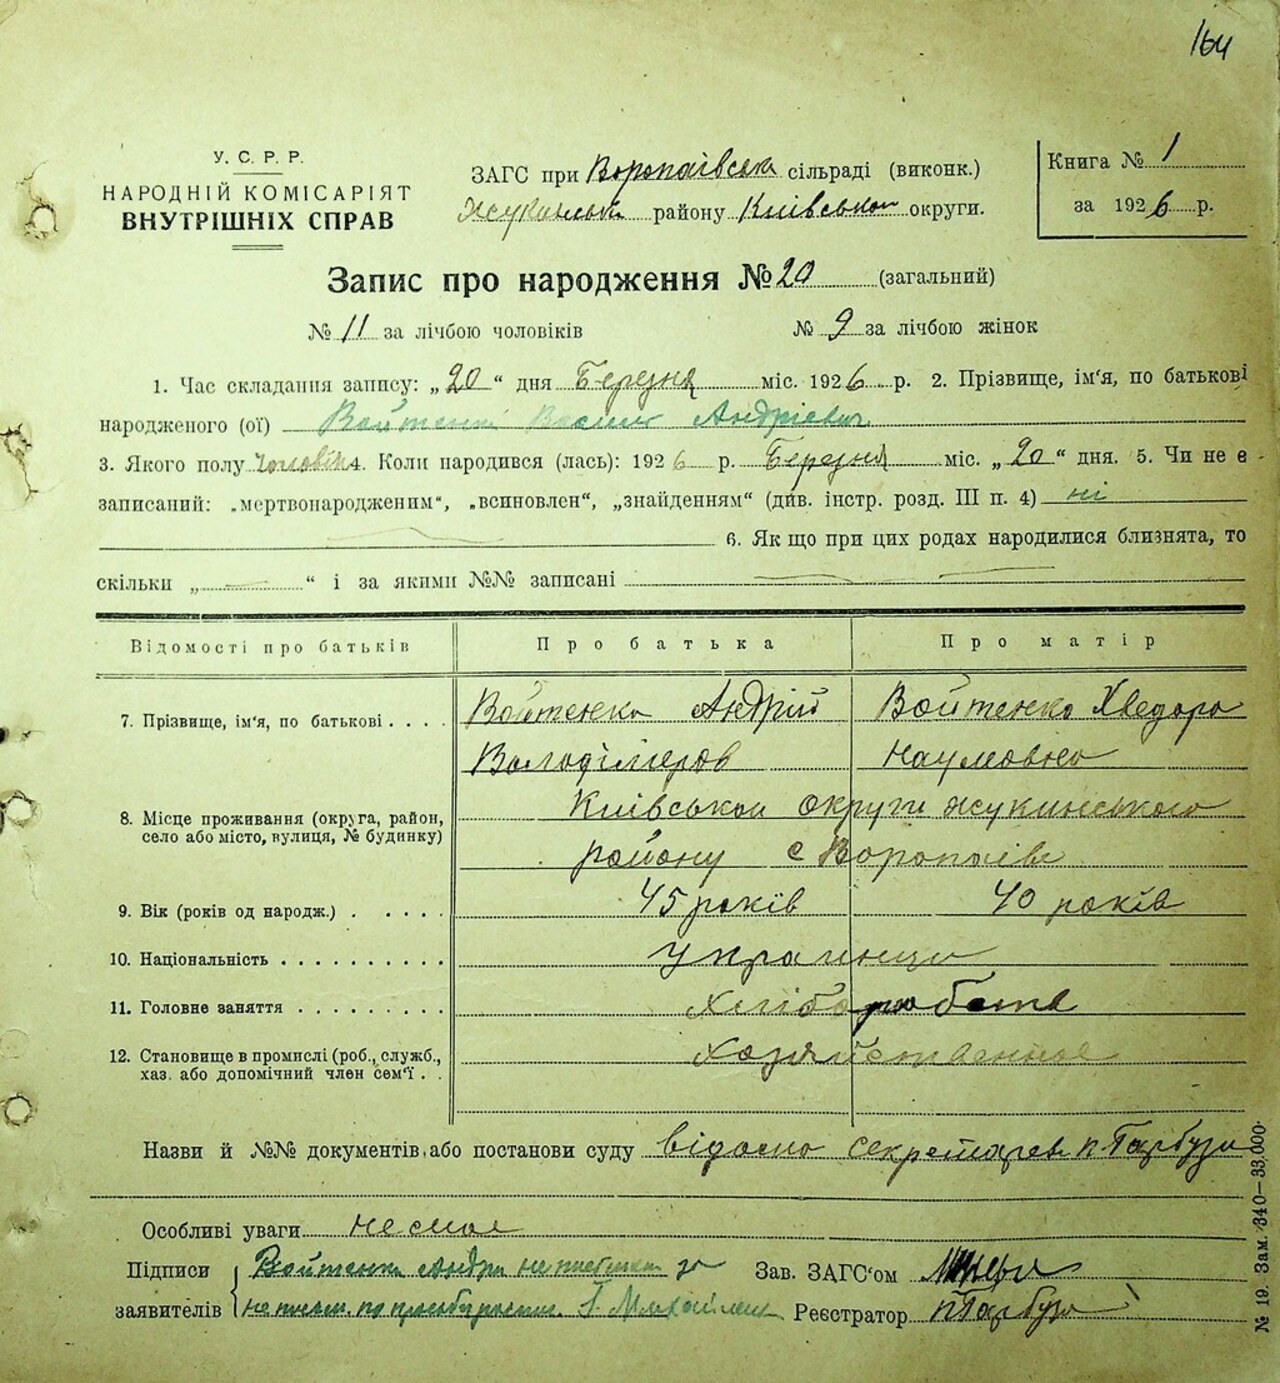 164
У. С. Р. Р.
НАРОДНІЙ КОМІСАРІЯТ
ВНУТРІШНІХ СПРАВ
ЗАГС при Воропаївська сільраді (виконк.)
Жукинськ району Київської округи.
Книга № 1
за 1926 р.
Запис про народження № 20 (загальний)
№ 11 за лічбою чоловіків № 9 за лічбою жінок
1. Час складання запису: „20“ дня Березня міс. 1926 р. 2. Прізвище, ім'я, по батькові
народженого (ої) Войтенко Василь Андрієвич
3. Якого полу чоловік 4. Коли народився (лась): 1926 р. Березня міс. „20“ дня. 5. Чи не є
записаний: „мертвонародженим“, „всиновлен“, „знайденням“ (див. інстр. розд. III п. 4) ні
6. Як що при цих родах народилися близнята, то
скільки „ “ і за якими №№ записані
Відомості про батьків Про батька Про матір
7. Прізвище, ім'я, по батькові . . . . Войтенко Андрій Войтенко Хведора
Володімеров Наумовна
8. Місце проживання (округа, район, село або місто, вулиця, № будинку) Київської округи жукинського
району с Воропаїв
9. Вік (років од народж.) . . . . . 45 років 40 років
10. Національність . . . . . . . . . . Українци
11. Головне заняття . . . . . . . . . Хліборобств
12. Становище в промислі (роб., служб., хаз. або допомічний член сем'ї . . Хозяйственное
Назви й №№ документів або постанови суду відомо секретарев П. Гарбузи
Особливі уваги немає
Підписи Войтенко Андрій за
заявителів
Зав. ЗАГС'ом
Реєстратор П Гарбуз
№ 19. Зам. 340—33.000.